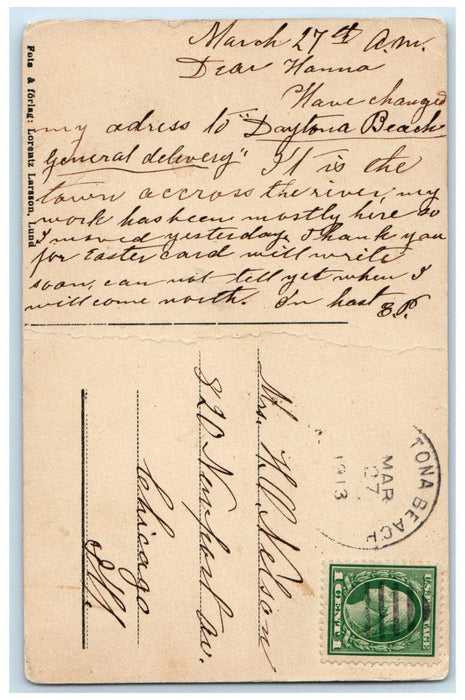 March 27th A.M.
Dear Hanna
Have changed
my adress to "Daytona Beach
General delivery". It is the
town accross the river, my
work has been mostly hire so
I moved yesterday. Thank you
for Easter card will write
soon, can not tell yet when I
will come north. In hast
E.P.
Foto & förlag: Lorentz Larsson, Lund
Mrs. H.O. Nelson
820 Newport av.
Chicago
Ill.
TONA BEACH
MAR
27
1913
U.S. POSTAGE
1 CENT 1